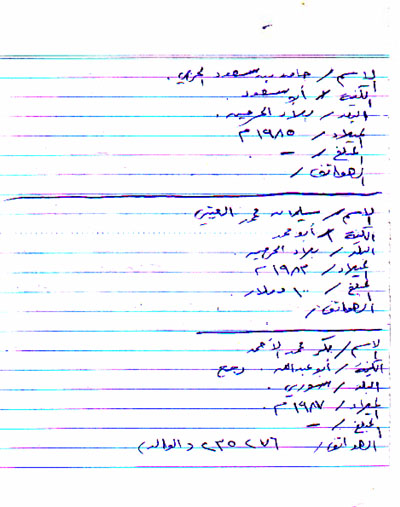 الاسم / حامد بن مسعود الحربي.
الكنية / أبو مسعود
البلد / بلاد الحرمين.
الميلاد / ١٩٨٥ م
المبلغ / -
الهواتف /
الاسم / سليمان محمد العتيبي
الكنية / أبو محمد
البلد / بلاد الحرمين.
الميلاد / ١٩٨٣ م
المبلغ / ١٠٠ دولار.
الهواتف /
الاسم / محمد الأحمد
الكنية / أبو عبدالله.
البلد / سوري.
الميلاد / ١٩٨٧ م.
المبلغ / -
الهواتف / ٢٣٥٢٧٦ (الوالد)